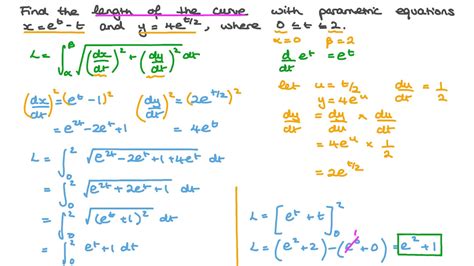 Find the length of the curve with parametric equations
x = e^t - t and y = 4e^{t/2}, where 0 ≤ t ≤ 2.
α = 0 β = 2
L = ∫_α^β √((dx/dt)² + (dy/dt)²) dt
d/dt e^t = e^t
(dx/dt)² = (e^t - 1)²
= e^{2t} - 2e^t + 1
(dy/dt)² = (2e^{t/2})²
= 4e^t
let u = t/2 du/dt = 1/2
y = 4e^u
dy/dt = dy/du × du/dt
= 4e^u × 1/2
= 2e^{t/2}
L = ∫_0^2 √(e^{2t} - 2e^t + 1 + 4e^t) dt
= ∫_0^2 √(e^{2t} + 2e^t + 1) dt
= ∫_0^2 √((e^t + 1)²) dt
= ∫_0^2 e^t + 1 dt
L = [e^t + t]_0^2
1
L = (e² + 2) - (e^0 + 0) = e² + 1